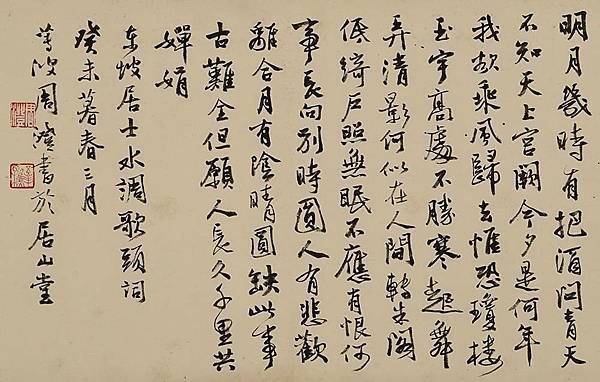 明月幾時有把酒問青天
不知天上宮闕今夕是何年
我欲乘風歸去惟恐瓊樓
玉宇高處不勝寒起舞
弄清影何似在人間轉朱閣
低綺戶照無眠不應有恨何
事長向別時圓人有悲歡
離合月有陰晴圓缺此事
古難全但願人長久千里共
嬋娟
東坡居士水調歌頭詞
癸未暮春三月
蓴波周澄書於居山堂